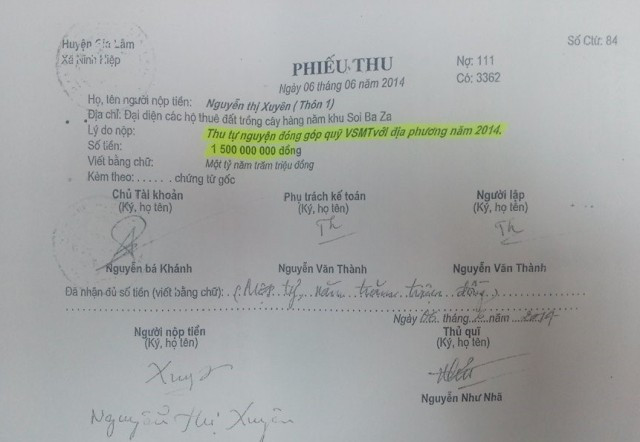 Huyện Gia Lâm
Xã Ninh Hiệp
Số Ctừ: 84
PHIẾU THU
Ngày 06 tháng 06 năm 2014
Nợ: 111
Có: 3362
Họ, tên người nộp tiền: Nguyễn thị Xuyên ( Thôn 1)
Địa chỉ: Đại diện các hộ thuê đất trồng cây hàng năm khu Soi Ba Za
Lý do nộp: Thu tự nguyện đóng góp quỹ VSMTvới địa phương năm 2014.
Số tiền: 1 500 000 000 đồng
Viết bằng chữ: Một tỷ năm trăm triệu đồng
Kèm theo:. . . . . . chứng từ gốc
Chủ Tài khoản Phụ trách kế toán Người lập
(Ký, họ tên) (Ký, họ tên) (Ký, họ tên)
Th Th
Nguyễn bá Khánh Nguyễn Văn Thành Nguyễn Văn Thành
Đã nhận đủ số tiền (viết bằng chữ): (Một tỷ, năm trăm triệu đồng)
Ngày 06 tháng 6 năm 2014
Người nộp tiền Thủ quĩ
(Ký, họ tên) (Ký, họ tên)
Xuyên
Nguyễn Như Nhã
Nguyễn Thị Xuyên